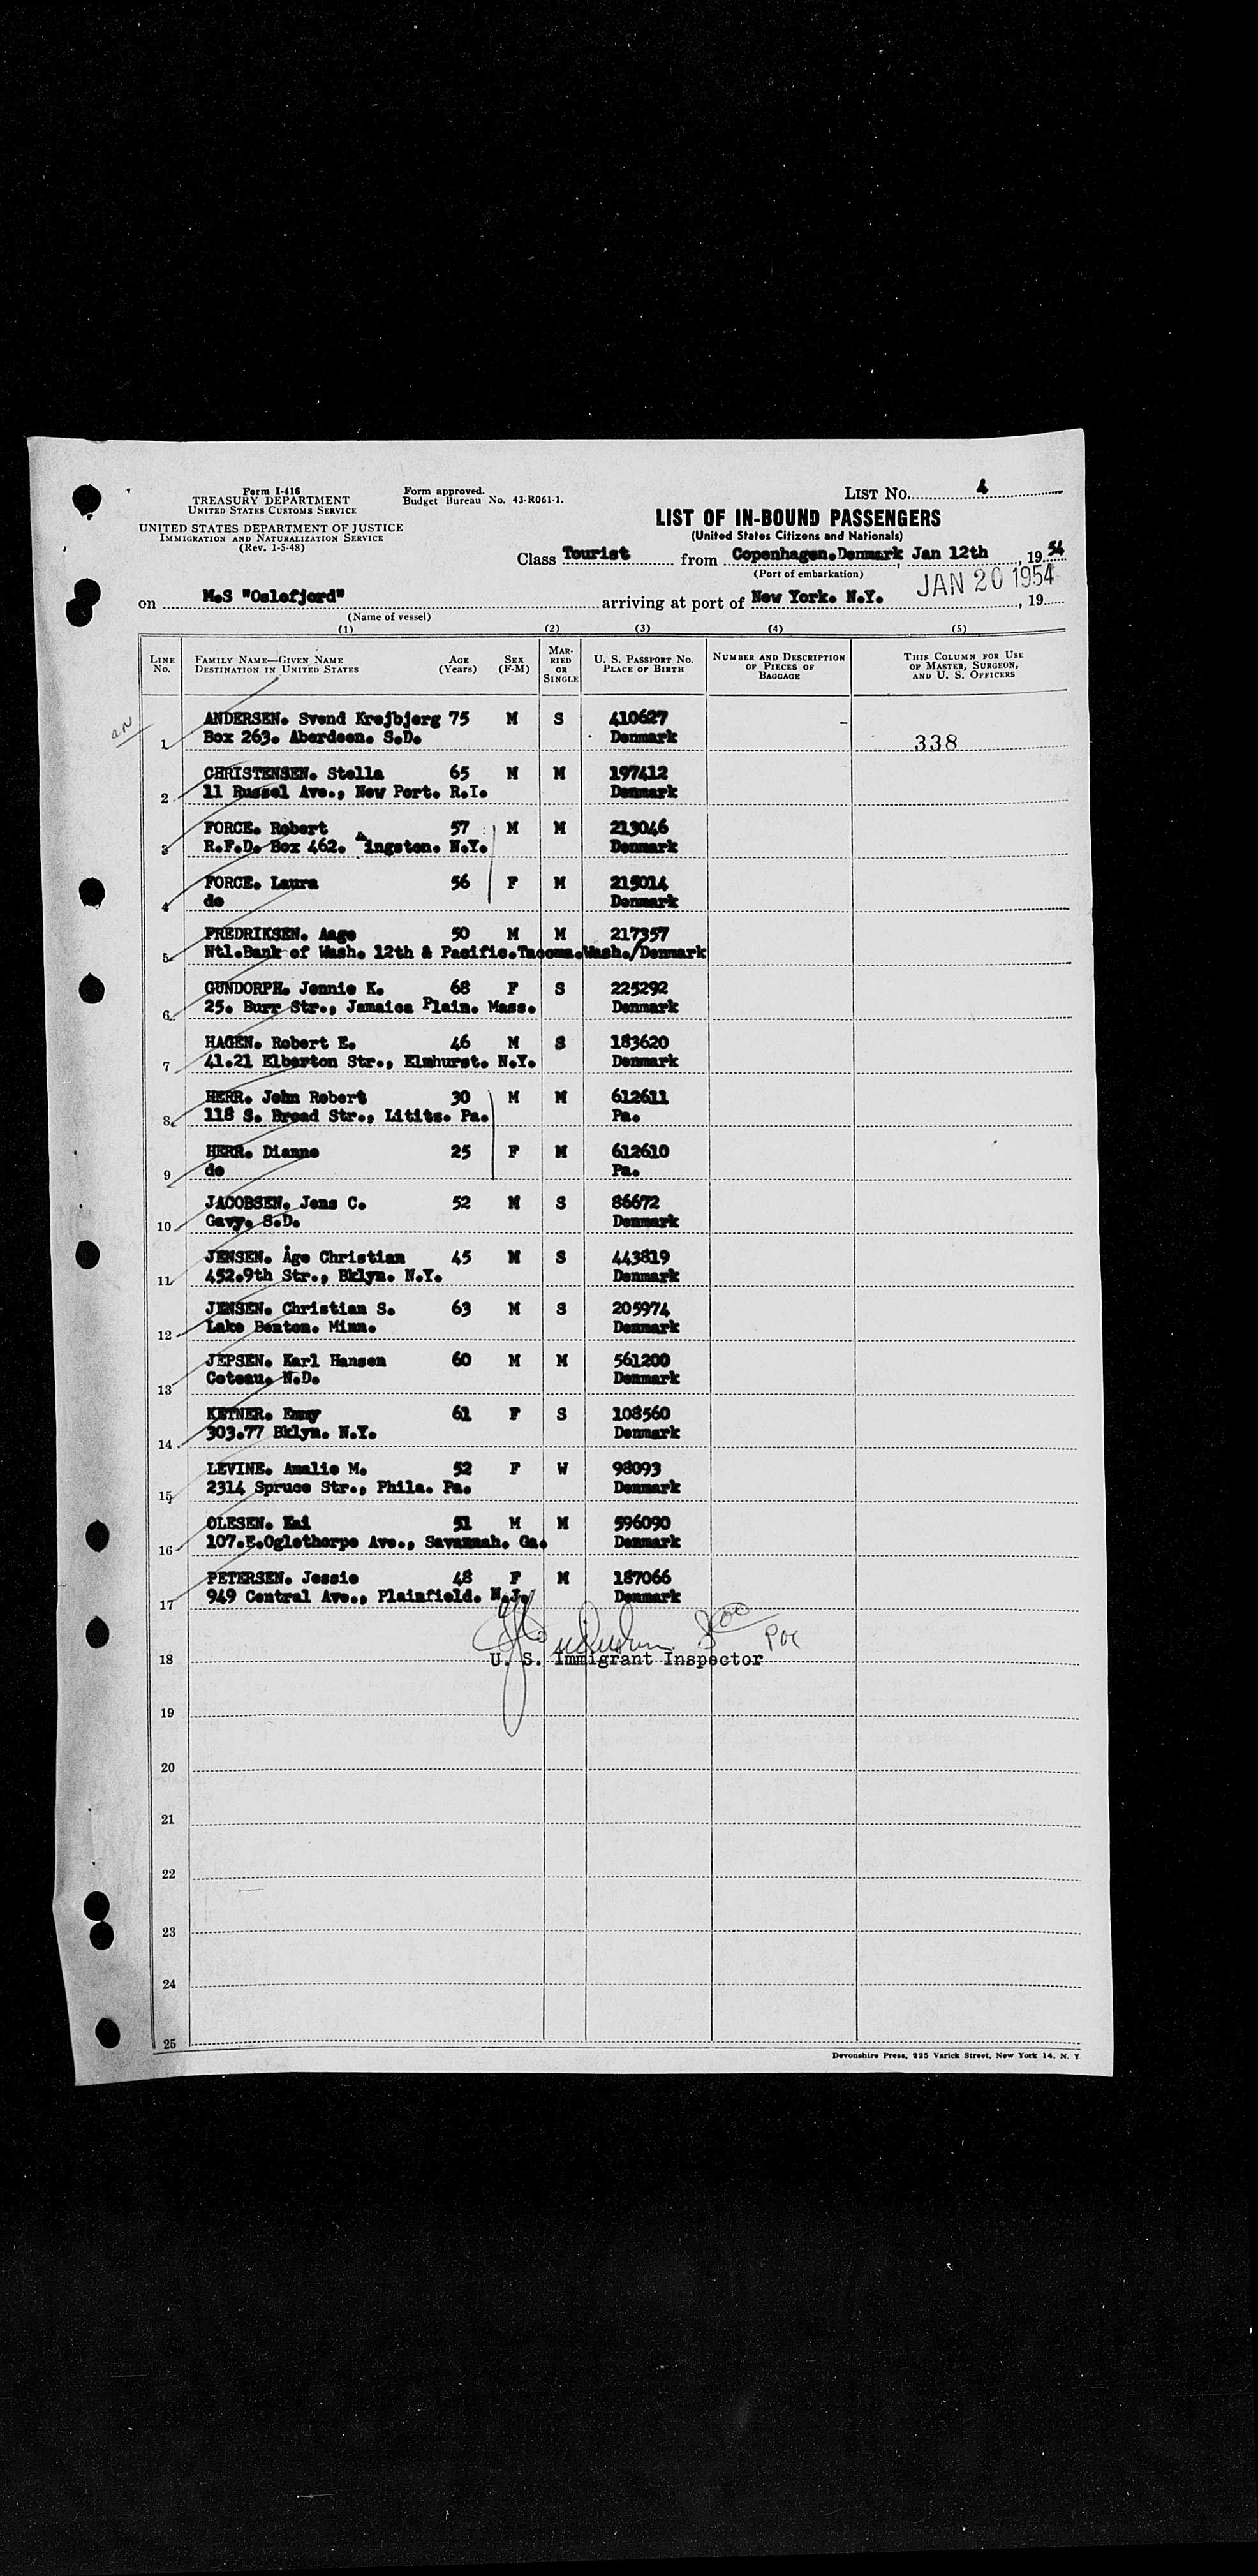 Form I-416
TREASURY DEPARTMENT
UNITED STATES CUSTOMS SERVICE
UNITED STATES DEPARTMENT OF JUSTICE
IMMIGRATION AND NATURALIZATION SERVICE
(Rev. 1-5-48)
Form approved.
Budget Bureau No. 43-R061-1.
LIST No. 4
LIST OF IN-BOUND PASSENGERS
(United States Citizens and Nationals)
Class Tourist from Copenhagen.Denmark, Jan 12th, 19 54
(Port of embarkation)
JAN 20 1954
on M.S "Oslofjord" arriving at port of New York. N.Y. , 19
(Name of vessel)
(1) (2) (3) (4) (5)
LINE No. FAMILY NAME—GIVEN NAME DESTINATION IN UNITED STATES AGE (Years) SEX (F-M) MARRIED OR SINGLE U. S. PASSPORT No. PLACE OF BIRTH NUMBER AND DESCRIPTION OF PIECES OF BAGGAGE THIS COLUMN FOR USE OF MASTER, SURGEON, AND U. S. OFFICERS
ANDERSEN. Svend Krejbjerg 75 M S 410627
1 Box 263. Aberdeen. S.D. Denmark 338
CHRISTENSEN. Stella 65 M M 197412
2 11 Russel Ave., New Port. R.I. Denmark
FORCE. Robert 57 M M 213046
3 R.F.D. Box 462. Kingston. N.Y. Denmark
FORCE. Laura 56 F M 215014
4 do Denmark
FREDRIKSEN. Aage 50 M M 217357
5 Ntl.Bank of Wash. 12th & Pacific.Tacoma.Wash./Denmark
GUNDORPH. Jennie K. 68 F S 225292
6 25. Burr Str., Jamaica Plain. Mass. Denmark
HAGEN. Robert E. 46 M S 183620
7 41.21 Elberton Str., Elmhurst. N.Y. Denmark
HERR. John Robert 30 M M 612611
8 118 S. Broad Str., Lititz. Pa. Pa.
HERR. Dianne 25 F M 612610
9 do Pa.
JACOBSEN. Jens C. 52 M S 86672
10 Gavy. S.D. Denmark
JENSEN. Åge Christian 45 M S 443819
11 452.9th Str., Bklyn. N.Y. Denmark
JENSEN. Christian S. 63 M S 205974
12 Lake Benton. Minn. Denmark
JEPSEN. Karl Hansen 60 M M 561200
13 Coteau. N.D. Denmark
KETNER. Emmy 61 F S 108560
14 303.77 Bklyn. N.Y. Denmark
LEVINE. Amalie M. 52 F W 98093
15 2314 Spruce Str., Phila. Pa. Denmark
OLESEN. Kai 51 M M 596090
16 107.E.Oglethorpe Ave., Savannah. Ga. Denmark
PETERSEN. Jessie 48 F M 187066
17 949 Central Ave., Plainfield. N.J. Denmark
18 U. S. Immigrant Inspector
19
20
21
22
23
24
25
Devonshire Press, 225 Varick Street, New York 14, N. Y.